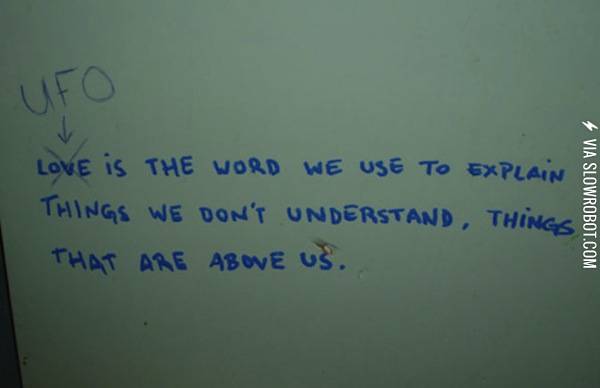 UFO
LOVE iS THE WORD WE USE TO EXPLAiN
THINGS WE DON'T UNDERSTAND, THINGS
THAT ARE ABOVE US.
VIA SLOWROBOT.COM